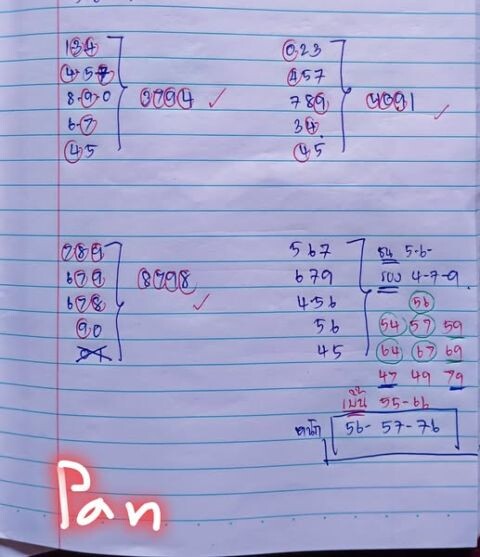 134
4-5-7
8-9-0
6-7
45
3794
0,23
457
789
34
45
4091
789
679
678
90
01
8798
567
679
456
56
45
เด่น 5-6-
รอง 4-7-9.
56
54 57 59
64 67 69
47 49 79
เบิ้ล 55-66
56- 57-76
Pan